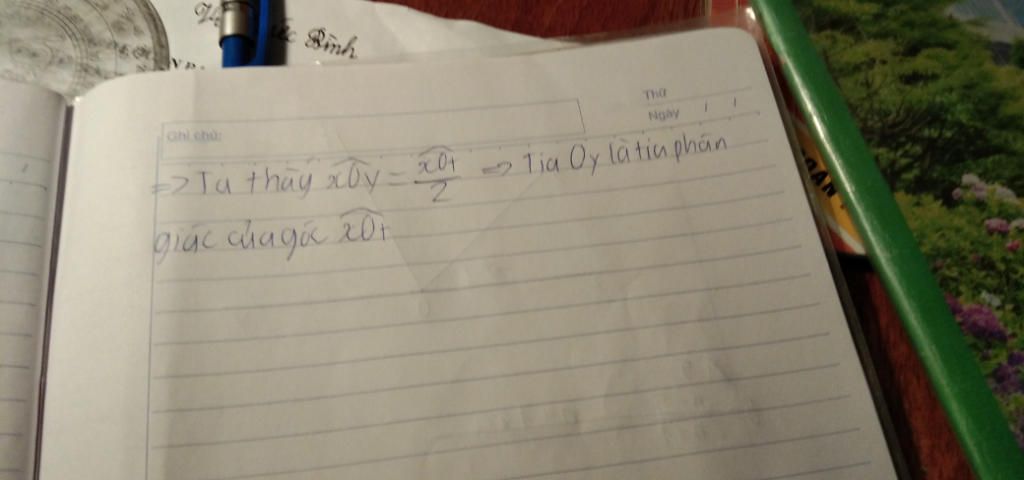 ắc Bình
Thứ
Ngày / /
Ghi chú:
=> Ta thấy xOy = xOt/2 => Tia Oy là tia phân
giác của góc xOt